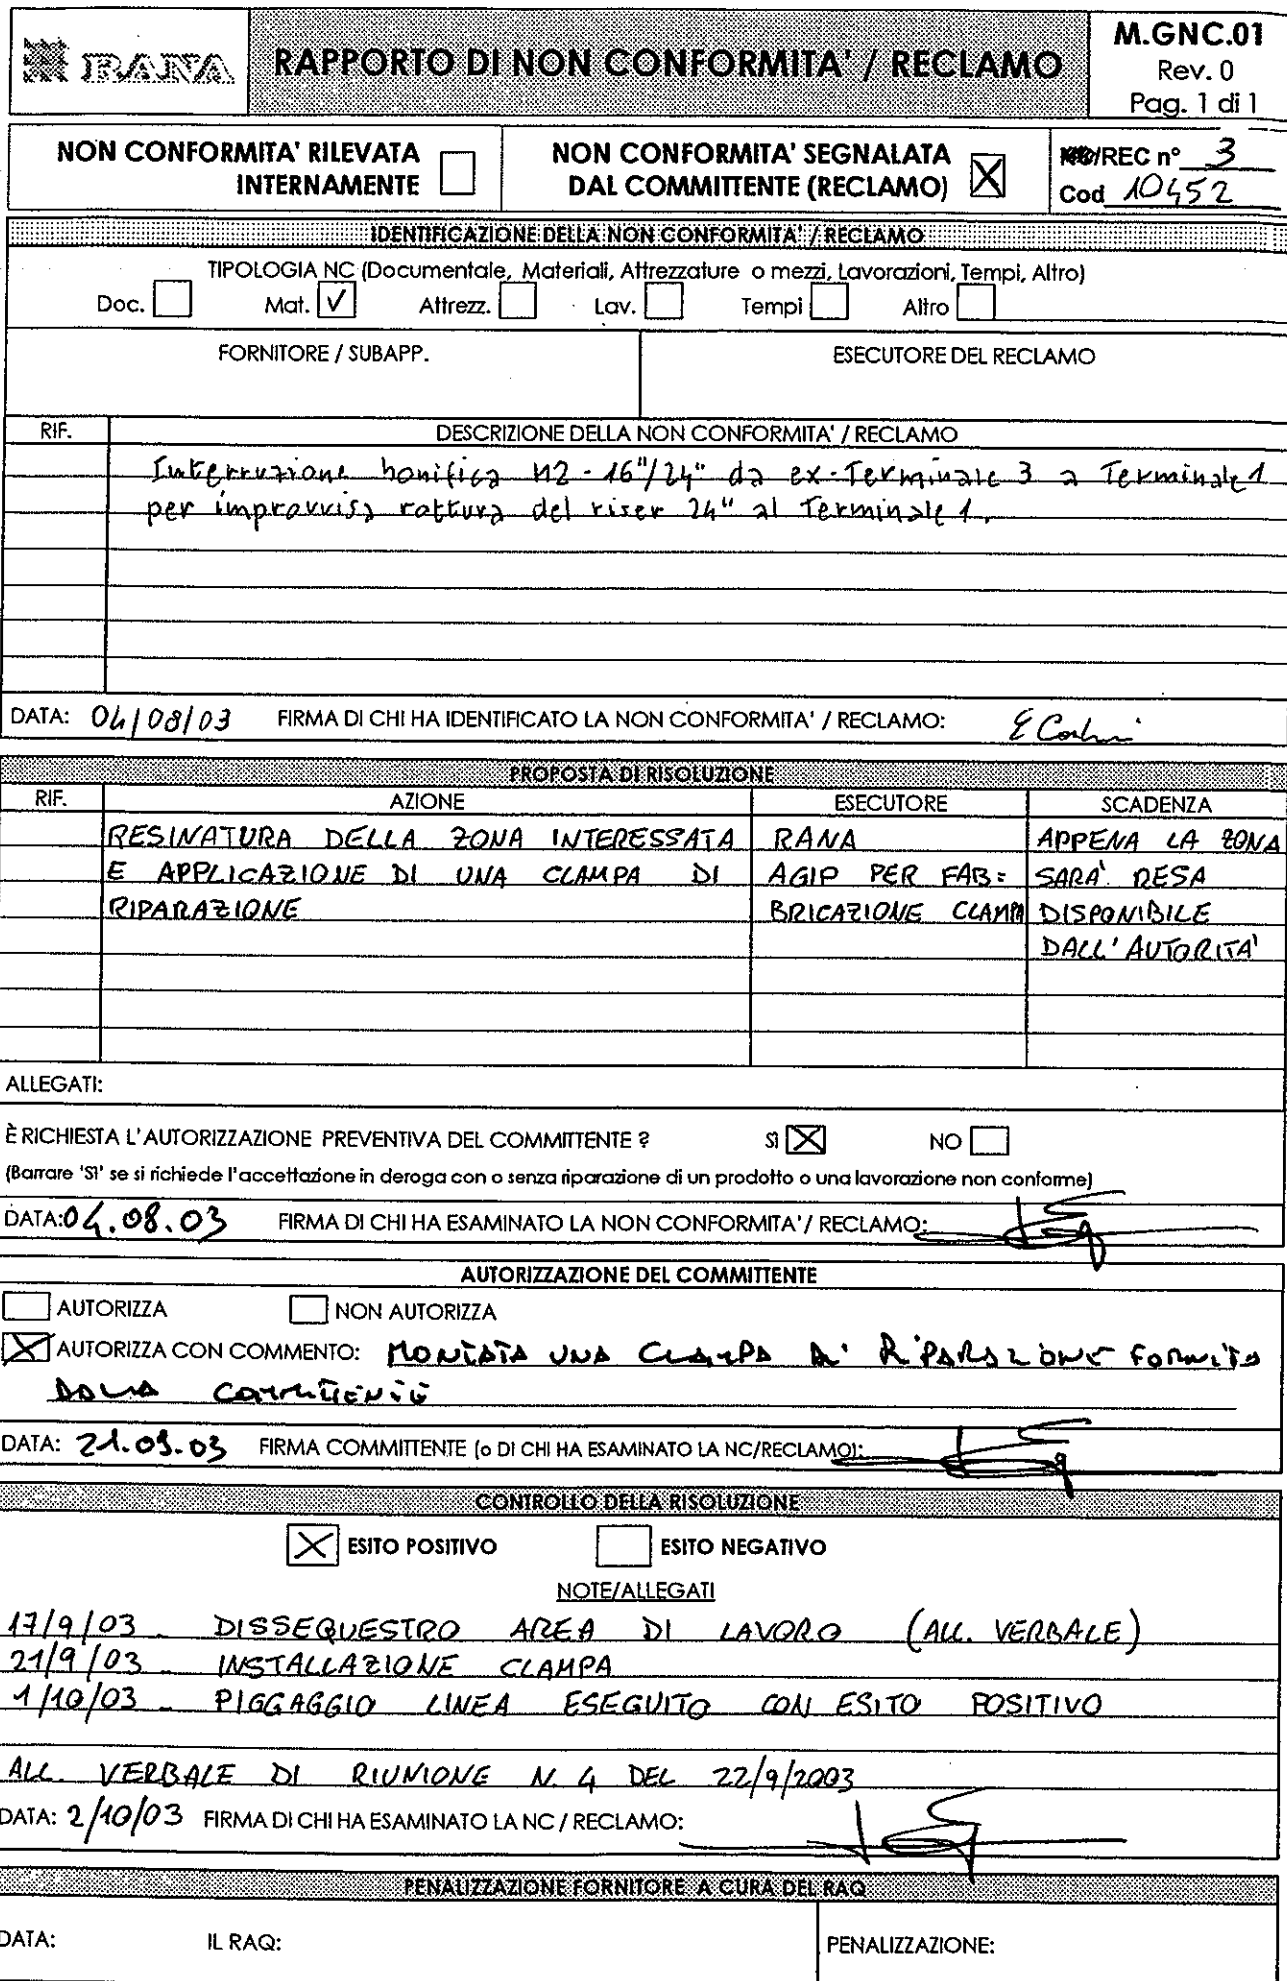 RANA
RAPPORTO DI NON CONFORMITA' / RECLAMO
M.GNC.01
Rev. 0
Pag. 1 di 1
NON CONFORMITA' RILEVATA
INTERNAMENTE
NON CONFORMITA' SEGNALATA
DAL COMMITTENTE (RECLAMO)
/REC n° 3
Cod 10452
IDENTIFICAZIONE DELLA NON CONFORMITA' / RECLAMO
TIPOLOGIA NC (Documentale, Materiali, Attrezzature o mezzi, Lavorazioni, Tempi, Altro)
Doc. Mat. Attrezz. Lav. Tempi Altro
FORNITORE / SUBAPP. ESECUTORE DEL RECLAMO
RIF. DESCRIZIONE DELLA NON CONFORMITA' / RECLAMO
Interruzione bonifica M2 - 16"/24" da ex-Terminale 3 a Terminale 1
per improvvisa rottura del riser 24" al Terminale 1.
DATA: 04/08/03 FIRMA DI CHI HA IDENTIFICATO LA NON CONFORMITA' / RECLAMO:
PROPOSTA DI RISOLUZIONE
RIF. AZIONE ESECUTORE SCADENZA
RESINATURA DELLA ZONA INTERESSATA RANA APPENA LA ZONA
E APPLICAZIONE DI UNA CLAMPA DI AGIP PER FAB= SARA' RESA
RIPARAZIONE BRICAZIONE CLAMPA DISPONIBILE
DALL'AUTORITA'
ALLEGATI:
È RICHIESTA L'AUTORIZZAZIONE PREVENTIVA DEL COMMITTENTE ? SÌ NO
(Barrare 'SÌ' se si richiede l'accettazione in deroga con o senza riparazione di un prodotto o una lavorazione non conforme)
DATA: 04.08.03 FIRMA DI CHI HA ESAMINATO LA NON CONFORMITA'/ RECLAMO:
AUTORIZZAZIONE DEL COMMITTENTE
AUTORIZZA NON AUTORIZZA
AUTORIZZA CON COMMENTO: MONTATA UNA CLAMPA DI RIPARAZIONE FORNITA
DALLA COMMITTENTE
DATA: 21.09.03 FIRMA COMMITTENTE (o DI CHI HA ESAMINATO LA NC/RECLAMO):
CONTROLLO DELLA RISOLUZIONE
ESITO POSITIVO ESITO NEGATIVO
NOTE/ALLEGATI
17/9/03 - DISSEQUESTRO AREA DI LAVORO (ALL. VERBALE)
21/9/03 - INSTALLAZIONE CLAMPA
1/10/03 - PIGGAGGIO LINEA ESEGUITO CON ESITO POSITIVO
ALL. VERBALE DI RIUNIONE N. 4 DEL 22/9/2003
DATA: 2/10/03 FIRMA DI CHI HA ESAMINATO LA NC / RECLAMO:
PENALIZZAZIONE FORNITORE A CURA DEL RAQ
DATA: IL RAQ: PENALIZZAZIONE: